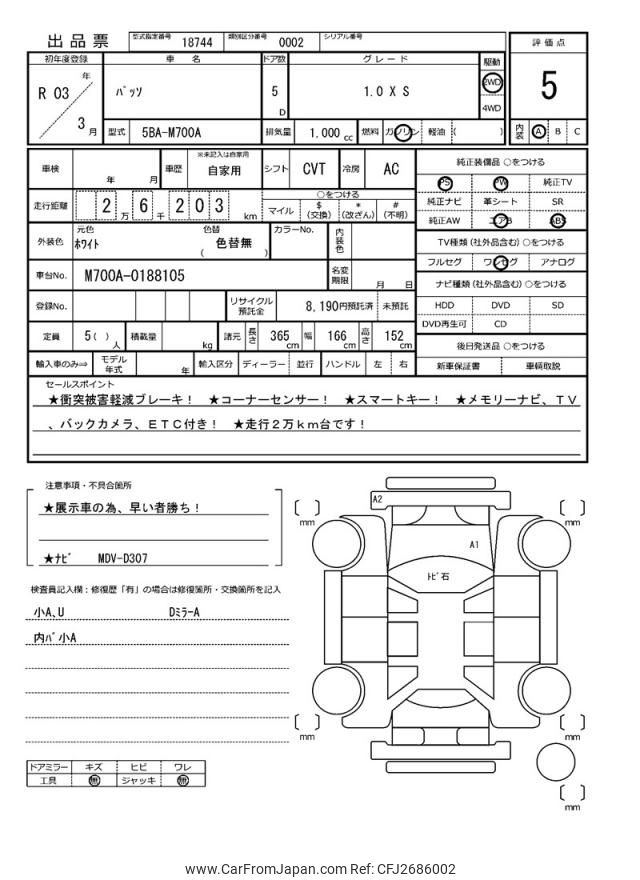 出品票
型式指定番号 18744 類別区分番号 0002 シリアル番号
評価点
5
内装 A B C
初年度登録 車名 ドア数 グレード 駆動
R 03 年 3 月
ﾊﾟｯｿ
5 D
1.0 X S
2WD
4WD
型式 5BA-M700A 排気量 1,000 cc 燃料 ガソリン 軽油 ( )
車検 年 月 車歴 ※未記入は自家用 自家用 シフト CVT 冷房 AC
走行距離 2 万 6 千 2 0 3 km
○をつける
マイル $(交換) *(改ざん) #(不明)
外装色 元色 ﾎﾜｲﾄ 色替 色替無 ( ) カラーNo. 内装色
車台No. M700A-0188105 名変期限 月 日
登録No. リサイクル預託金 8,190円預託済 未預託
定員 5( )人 積載量 kg 諸元 長さ 365 cm 幅 166 cm 高さ 152 cm
輸入車のみ⇒ モデル年式 年 輸入区分 ディーラー 並行 ハンドル 左 右
純正装備品 ○をつける
PS PW 純正TV
純正ナビ 革シート SR
純正AW エアB ABS
TV種類(社外品含む)○をつける
フルセグ ワンセグ アナログ
ナビ種類(社外品含む)○をつける
HDD DVD SD
DVD再生可 CD
後日発送品 ○をつける
新車保証書 車輌取説
セールスポイント
★衝突被害軽減ブレーキ！ ★コーナーセンサー！ ★スマートキー！ ★メモリーナビ、ＴＶ
、バックカメラ、ＥＴＣ付き！ ★走行２万ｋｍ台です！
注意事項・不具合箇所
★展示車の為、早い者勝ち！
★ﾅﾋﾞ MDV-D307
検査員記入欄：修復歴「有」の場合は修復箇所・交換箇所を記入
小A､U DﾐﾗｰA
内ﾊﾞ小A
ドアミラー キズ ヒビ ワレ
工具 無 ジャッキ 無
A2
A1
ﾄﾋﾞ石
mm
mm
mm
mm
mm
www.CarFromJapan.com Ref: CFJ2686002